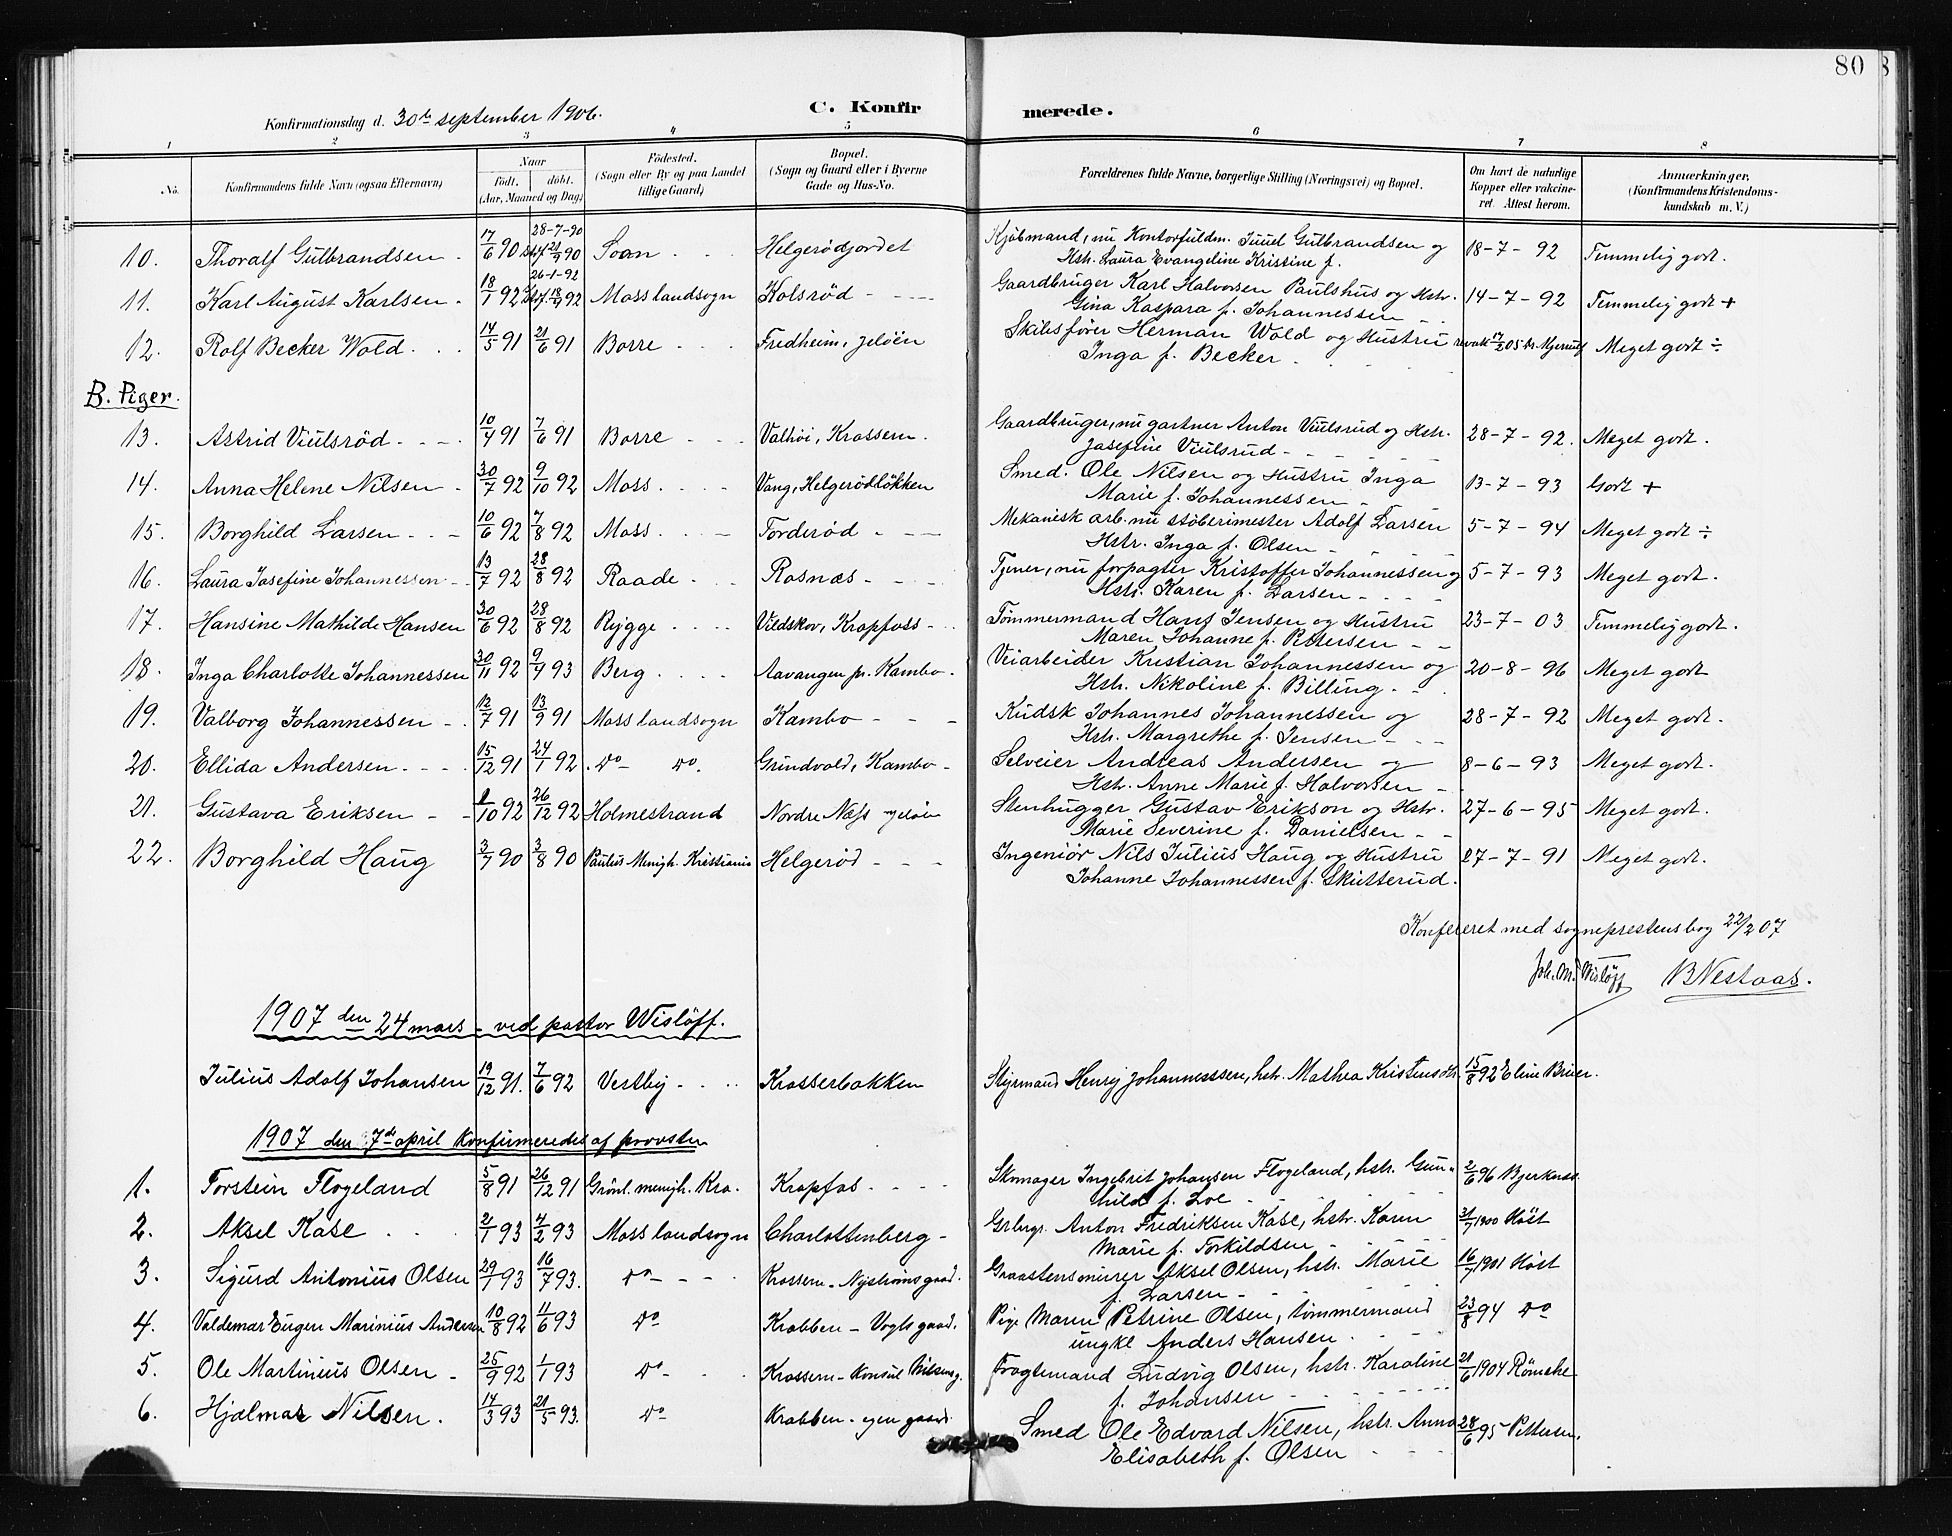 80
C. Konfirmerede.
Konfirmationsdag d. 30te september 1906.
1 2 3 4 5 6 7 8
No. Konfirmandens fulde Navn (ogsaa Efternavn) Naar født. døbt. (Aar, Maaned og Dag) Fødested. (Sogn eller By og paa Landet tillige Gaard) Bopæl. (Sogn og Gaard eller i Byerne Gade og Hus-No. Forældrenes fulde Navne, borgerlige Stilling (Næringsvei) og Bopæl. Om havt de naturlige Kopper eller vakcineret. Attest herom. Anmærkninger, (Konfirmandens Kristendomskundskab m. V.)
10. Thoralf Gulbrandsen 17/6 90 28-7-90 Soon Helgerødjordet Kjøbmand, nu Kontorfuldm. Juul Gulbrandsen og Hstr. Laura Evangeline Kristine f. 18-7-92 Temmelig godt.
11. Karl August Karlsen 18/1 92 26-1-92 Moss landsogn Kolsrød Gaardbruger Karl Halvorsen Paulshus og Hstr. Gina Kaspara f. Johannessen 14-7-92 Temmelig godt +
12. Rolf Becker Wold 14/5 91 21/6 91 Borre Fredheim, Jeløen Skibsfører Herman Wold og Hustru Inga f. Becker Meget godt ÷
B. Piger.
13. Astrid Viulsrød 10/4 91 7/6 91 Borre Valhøi, Krossern. Gaardbruger, nu gartner Anton Viulsrud og Hstr. Josefine Viulsrud 28-7-92. Meget godt.
14. Anna Helene Nilsen 30/7 92 9/10 92 Moss Vang, Helgerødløkken Smed. Ole Nilsen og Hustru Inga Marie f. Johannessen 13-7-93 Godt +
15. Borghild Larsen 10/6 92 7/8 92 Moss Torderød Mekanisk arb. nu støberimester Adolf Larsen Hstr. Inga f. Olsen 5-7-94 Meget godt ÷
16. Laura Josefine Johannessen 13/7 92 28/8 92 Raade Rosnæs Tjener, nu forpagter Kristoffer Johannessen og Hstr. Karen f. Larsen 5-7-93 Meget godt.
17. Hansine Mathilde Hansen 30/6 92 28/8 92 Rygge Vildskov, Kropfoss Tømmermand Hans Jensen og Hustru Maren Johanne f. Pettersen 23-7-03 Temmelig godt.
18. Inga Charlotte Johannessen 30/11 92 9/4 93 Berg Aavangen pr. Kambo. Veiarbeider Kristian Johannessen og Hstr. Nikoline f. Billing 20-8-96 Meget godt
19. Valborg Johannessen 12/7 91 13/9 91 Moss landsogn Kambo Kudsk Johannes Johannessen og Hstr. Margrethe f. Jensen 28-7-92 Meget godt.
20. Ellida Andersen 15/12 91 24/1 92 do do. Grindvold, Kambo Selveier Andreas Andersen og Hstr. Anne Marie f. Halvorsen 8-6-93 Meget godt.
21. Gustava Eriksen 1/10 92 26/12 92 Holmestrand Nordre Næss Jeløen Stenhugger Gustav Erikson og Hstr. Marie Severine f. Danielsen 27-6-95 Meget godt.
22. Borghild Haug 3/7 90 3/8 90 Paulus Menigh. Kristiania Helgerød Ingeniør Nils Julius Haug og Hustru Johanne Johannessen f. Skutterud. 27-7-91 Meget godt.
Konfereret med sogneprestens bog 22/2 07
Joh. M. Wisløff BNestaas.
1907 den 24 mars - ved pastor Wisløff.
Julius Adolf Johansen 19/12 91. 7/6 92 Vestby Krosserbakken Styrmand Henry Johannessen, hstr. Mathea Kristensdtr. 15/8 92 Eline Brier.
1907 den 7de april konfirmeredes af provsten
1. Torstein Flogeland 5/8 91 26/12 91 Grønl. menigh. Kra. Kropfos Skomager Ingebrit Johansen Flogeland, hstr. Gunhild f. Loe 2/6 96 Bjerknes.
2. Aksel Kase 2/1 93 4/2 93 Moss landsogn Charlottenberg Grbrgr. Anton Fredriksen Kase, hstr. Karen Marie f. Torkildsen 31/7 1900 Høst
3. Sigurd Antonius Olsen 29/1 93 16/7 93. do Krossern - Nystrømsgaard. Graastensmurer Aksel Olsen, hstr. Marie f. Larsen 16/7 1901 Høst
4. Valdemar Eugen Marinius Andersen 10/8 92 11/6 93 do Krabben - Vogts gaard. Pige Maren Petrine Olsen, tømmermand ungkl Anders Hansen 23/8 94 do
5. Ole Martinius Olsen 25/9 92 1/1 93 do Krossern - Konsul Nilsens g. Fragtemand Ludvig Olsen, hstr. Karoline f. Johansen 21/6 1904 Rømcke
6. Hjalmar Nilsen. 14/3 93 21/5 93. do Krabben - egen gaard Smed Ole Edvard Nilsen, hstr. Anna Elisabeth f. Olsen 28/6 95 Pettersen.